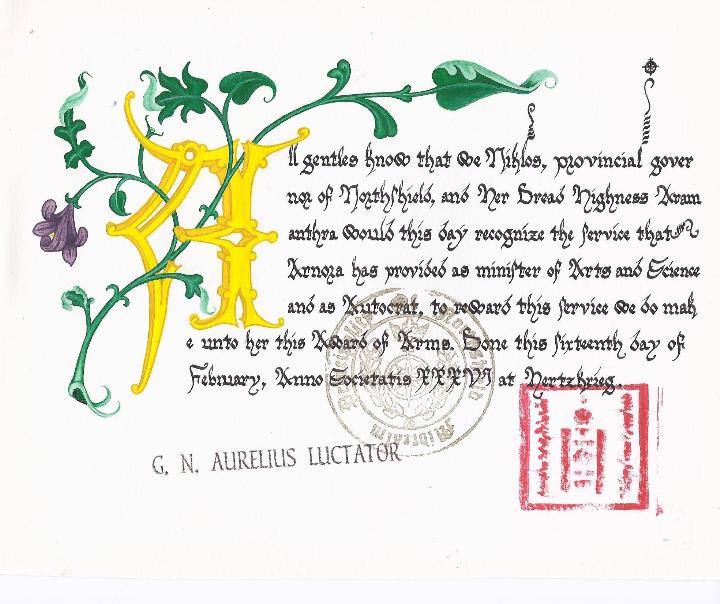 All gentles know that we Niklos, provincial gover
nor of Northshield, and Her Dread Highness Aram
anthra would this day recognize the service that
Arnora has provided as minister of Arts and Science
and as Autocrat, to reward this service we do mak
e unto her this Award of Arms. Done this sixteenth day of
February, Anno Societatis XXXVI at Hertzkrieg.
G. N. AURELIUS LUCTATOR